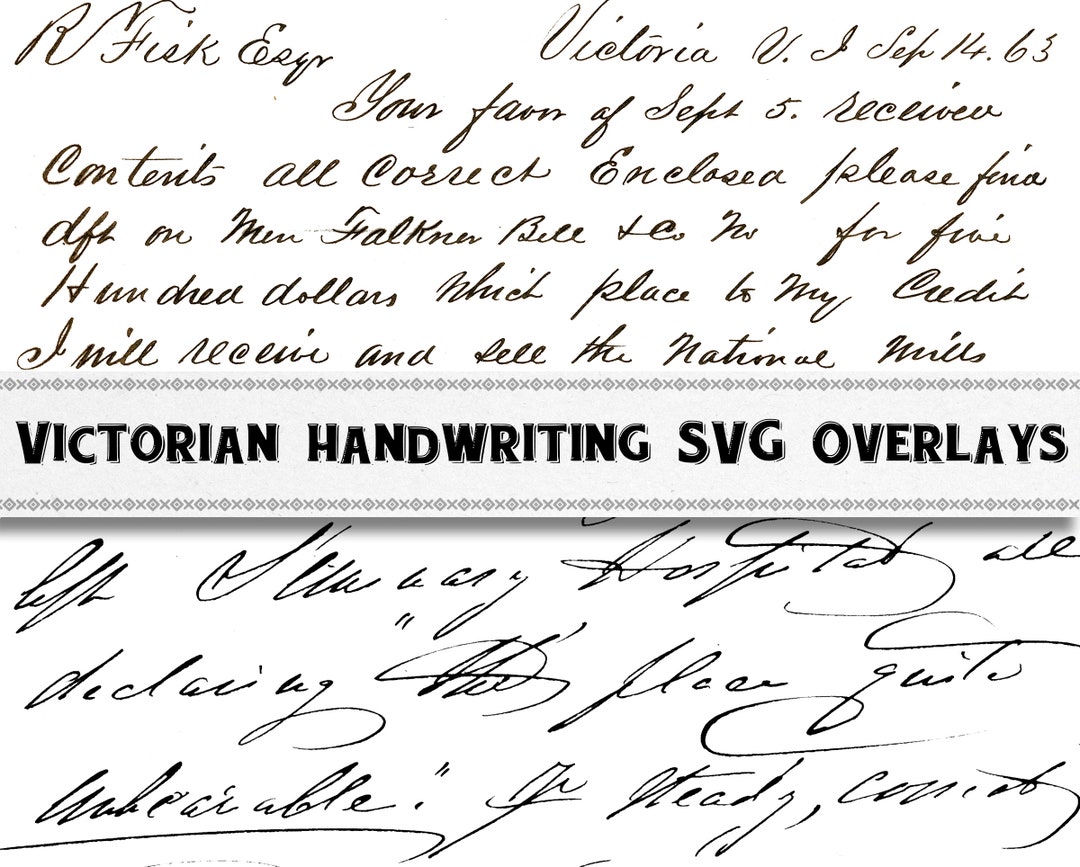 R Fisk Esqr Victoria V. I Sep 14. 63
Your favor of Sept 5. received
Contents all Correct Enclosed please find
dft on Falkner Bell & Co No for five
Hundred dollars which place to My Credit
I will receive and sell the National Mills
VICTORIAN HANDWRITING SVG OVERLAYS
left Hospital, all
declaring "the place quite
unbearable." steady,